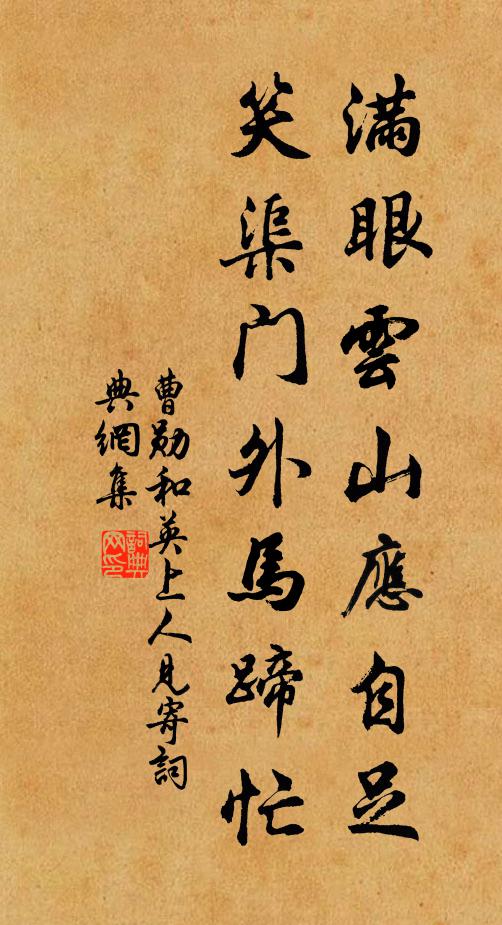 滿眼雲山應自足
笑渠門外馬蹄忙
曹勛和英上人見寄詞
典網集
詞典網印